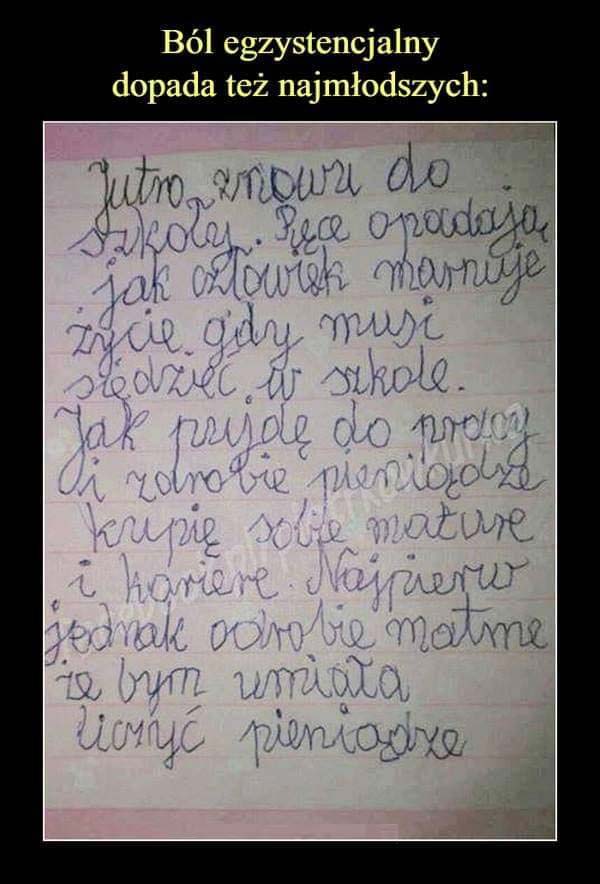 Ból egzystencjalny
dopada też najmłodszych:
Jutro znowu do
szkoły. Ręce opadają
jak człowiek marnuje
życie gdy musi
siędzieć w szkole.
Jak pujdę do pracy
i zdrobie pieniądze
kupię sobie mature
i kariere. Najpierw
jednak odrobię matme
że bym umiała
liczyć pieniądze